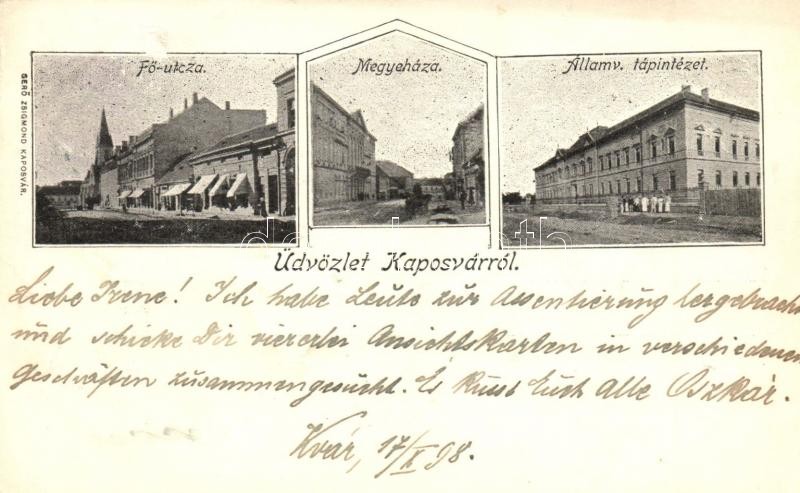 Fő-utcza.
Megyeháza.
Államv. tápintézet.
GERŐ ZSIGMOND KAPOSVÁR.
Üdvözlet Kaposvárról.
Liebe Irene! Ich habe Leute zur Assentierung hergebracht
und schicke Dir viererlei Ansichtskarten in verschiedenen
Geschäften zusammengesucht. Es küsst Euch Alle Oszkár.
Kvár, 17/X 98.